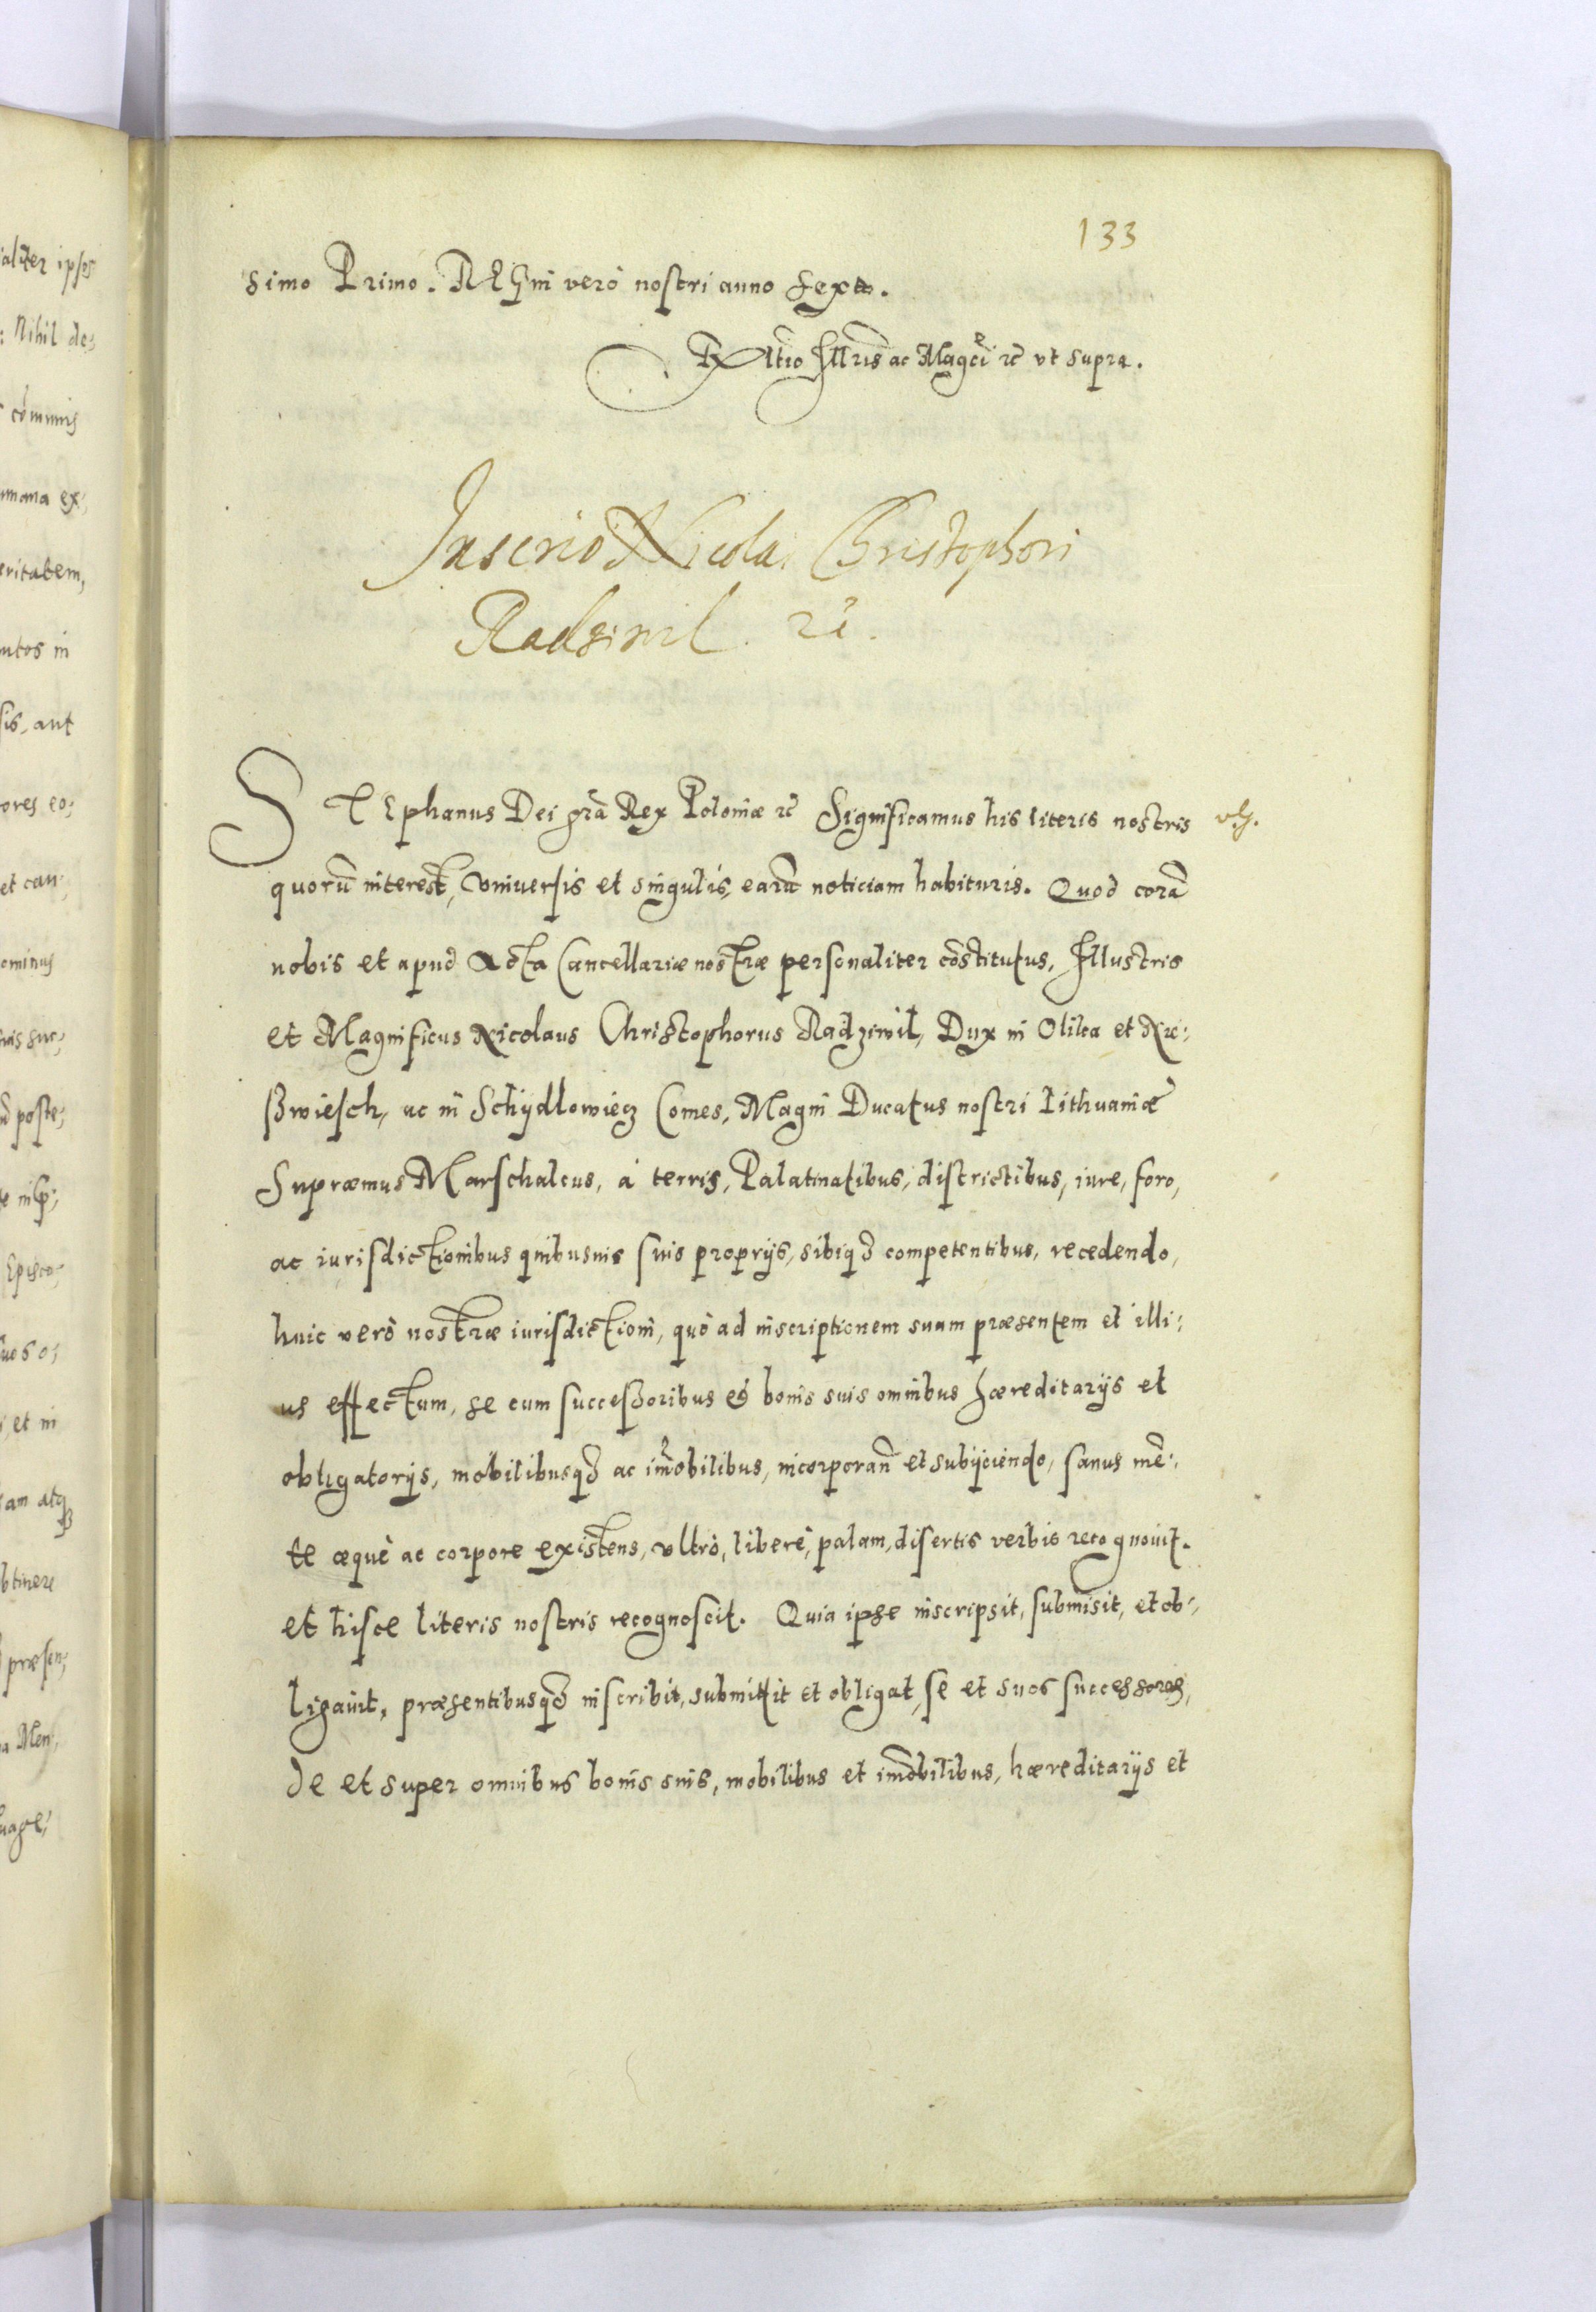 133
simo Primo. REGni verò nostri anno sexto.
Rltio Illris ac Magci rc vt supra.
Inscrio Nicolai Christophori
Radziwil rc.
STEphanus Dei gra Rex Poloniæ rc Significamus his literis nostris
quorū interest, vniuersis et singulis, earū noticiam habituris. Quod corā
nobis et apud Acta Cancellariæ nostræ personaliter cōstitutus, Illustris
et Magnificus Nicolaus Christophorus Radziwil, Dux in Olika et Nie:
ßwiesch, ac in Schÿdlowiecz Comes, Magni Ducatus nostri Lithuaniæ
Supræmus Marschalcus, à terris, Palatinatibus, districtibus, iure, foro,
ac iurisdictionibus quibusuis suis proprijs, sibiq3 competentibus, recedendo,
huic verò nostræ iurisdictioni, quò ad inscriptionem suam præsentem et illi:
us effectum, se cum succeßoribus & bonis suis omnibus hæreditarijs et
obligatorijs, mobilibusq3 ac im̄obilibus, incorporan̄ et subijciendo, sanus mē:
te æquè ac corpore existens, vltrò, liberè, palam, disertis verbis recognouit.
et hisce literis nostris recognoscit. Quia ipse inscripsit, submisit, et ob:
ligauit, præsentibusq3 inscribit, submittit et obligat, se et suos successores,
de et super omnibus bonis suis, mobilibus et im̄obilibus, hæreditarijs et